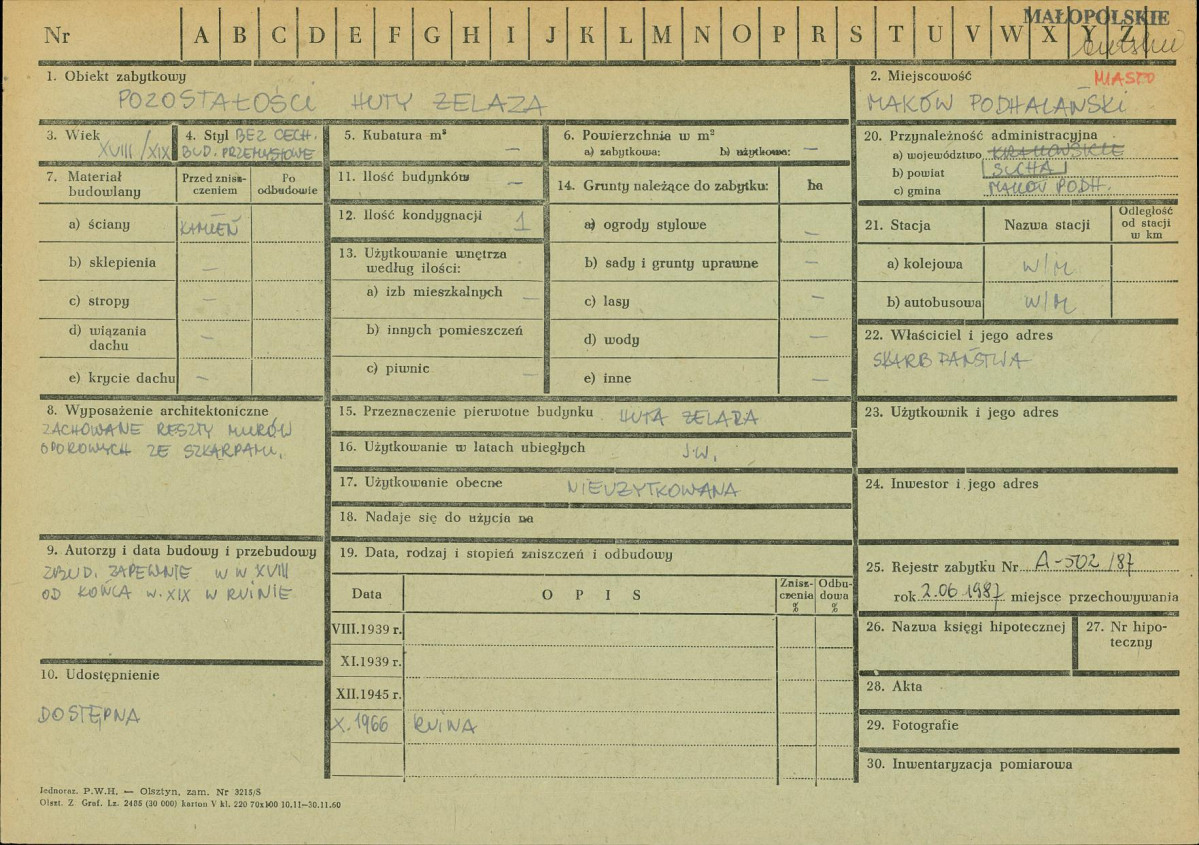 MAŁOPOLSKIE
Nr A B C D E F G H I J K L M N O P R S T U V W X Y Z
1. Obiekt zabytkowy
POZOSTAŁOŚCI HUTY ŻELAZA
2. Miejscowość MIASTO
MAKÓW PODHALAŃSKI
3. Wiek
XVIII/XIX
4. Styl BEZ CECH.
BUD. PRZEMYSŁOWE
5. Kubatura m³
—
6. Powierzchnia w m²
a) zabytkowa: b) użytkowa: —
7. Materiał budowlany
Przed zniszczeniem
Po odbudowie
a) ściany KAMIEŃ
b) sklepienia —
c) stropy —
d) wiązania dachu —
e) krycie dachu —
8. Wyposażenie architektoniczne
ZACHOWANE RESZTY MURÓW
OPOROWYCH ZE SZKARPAMI.
9. Autorzy i data budowy i przebudowy
ZBUD. ZAPEWNIE W W XVIII
OD KOŃCA W. XIX W RUINIE
10. Udostępnienie
DOSTĘPNA
11. Ilość budynków —
12. Ilość kondygnacji 1
13. Użytkowanie wnętrza
według ilości:
a) izb mieszkalnych —
b) innych pomieszczeń
c) piwnic —
14. Grunty należące do zabytku: ha
a) ogrody stylowe —
b) sady i grunty uprawne —
c) lasy —
d) wody —
e) inne —
15. Przeznaczenie pierwotne budynku HUTA ŻELAZA
16. Użytkowanie w latach ubiegłych J.W.
17. Użytkowanie obecne NIEUŻYTKOWANA
18. Nadaje się do użycia na
19. Data, rodzaj i stopień zniszczeń i odbudowy
Data
OPIS
Zniszczenia %
Odbudowa %
VIII.1939 r.
XI.1939 r.
XII.1945 r.
X.1966 RUINA
20. Przynależność administracyjna
a) województwo KRAKOWSKIE
b) powiat SUCHA
c) gmina MAKÓW PODH.
21. Stacja
Nazwa stacji
Odległość od stacji w km
a) kolejowa W/M
b) autobusowa W/M
22. Właściciel i jego adres
SKARB PAŃSTWA
23. Użytkownik i jego adres
24. Inwestor i jego adres
25. Rejestr zabytku Nr A-502/87
rok 2.06.1987 miejsce przechowywania
26. Nazwa księgi hipotecznej
27. Nr hipoteczny
28. Akta
29. Fotografie
30. Inwentaryzacja pomiarowa
Jednoraz. P.W.H. — Olsztyn, zam. Nr 3215/S
Olszt. Z. Graf. Lz. 2485 (30 000) karton V kl. 220 70x100 10.11—30.11.60